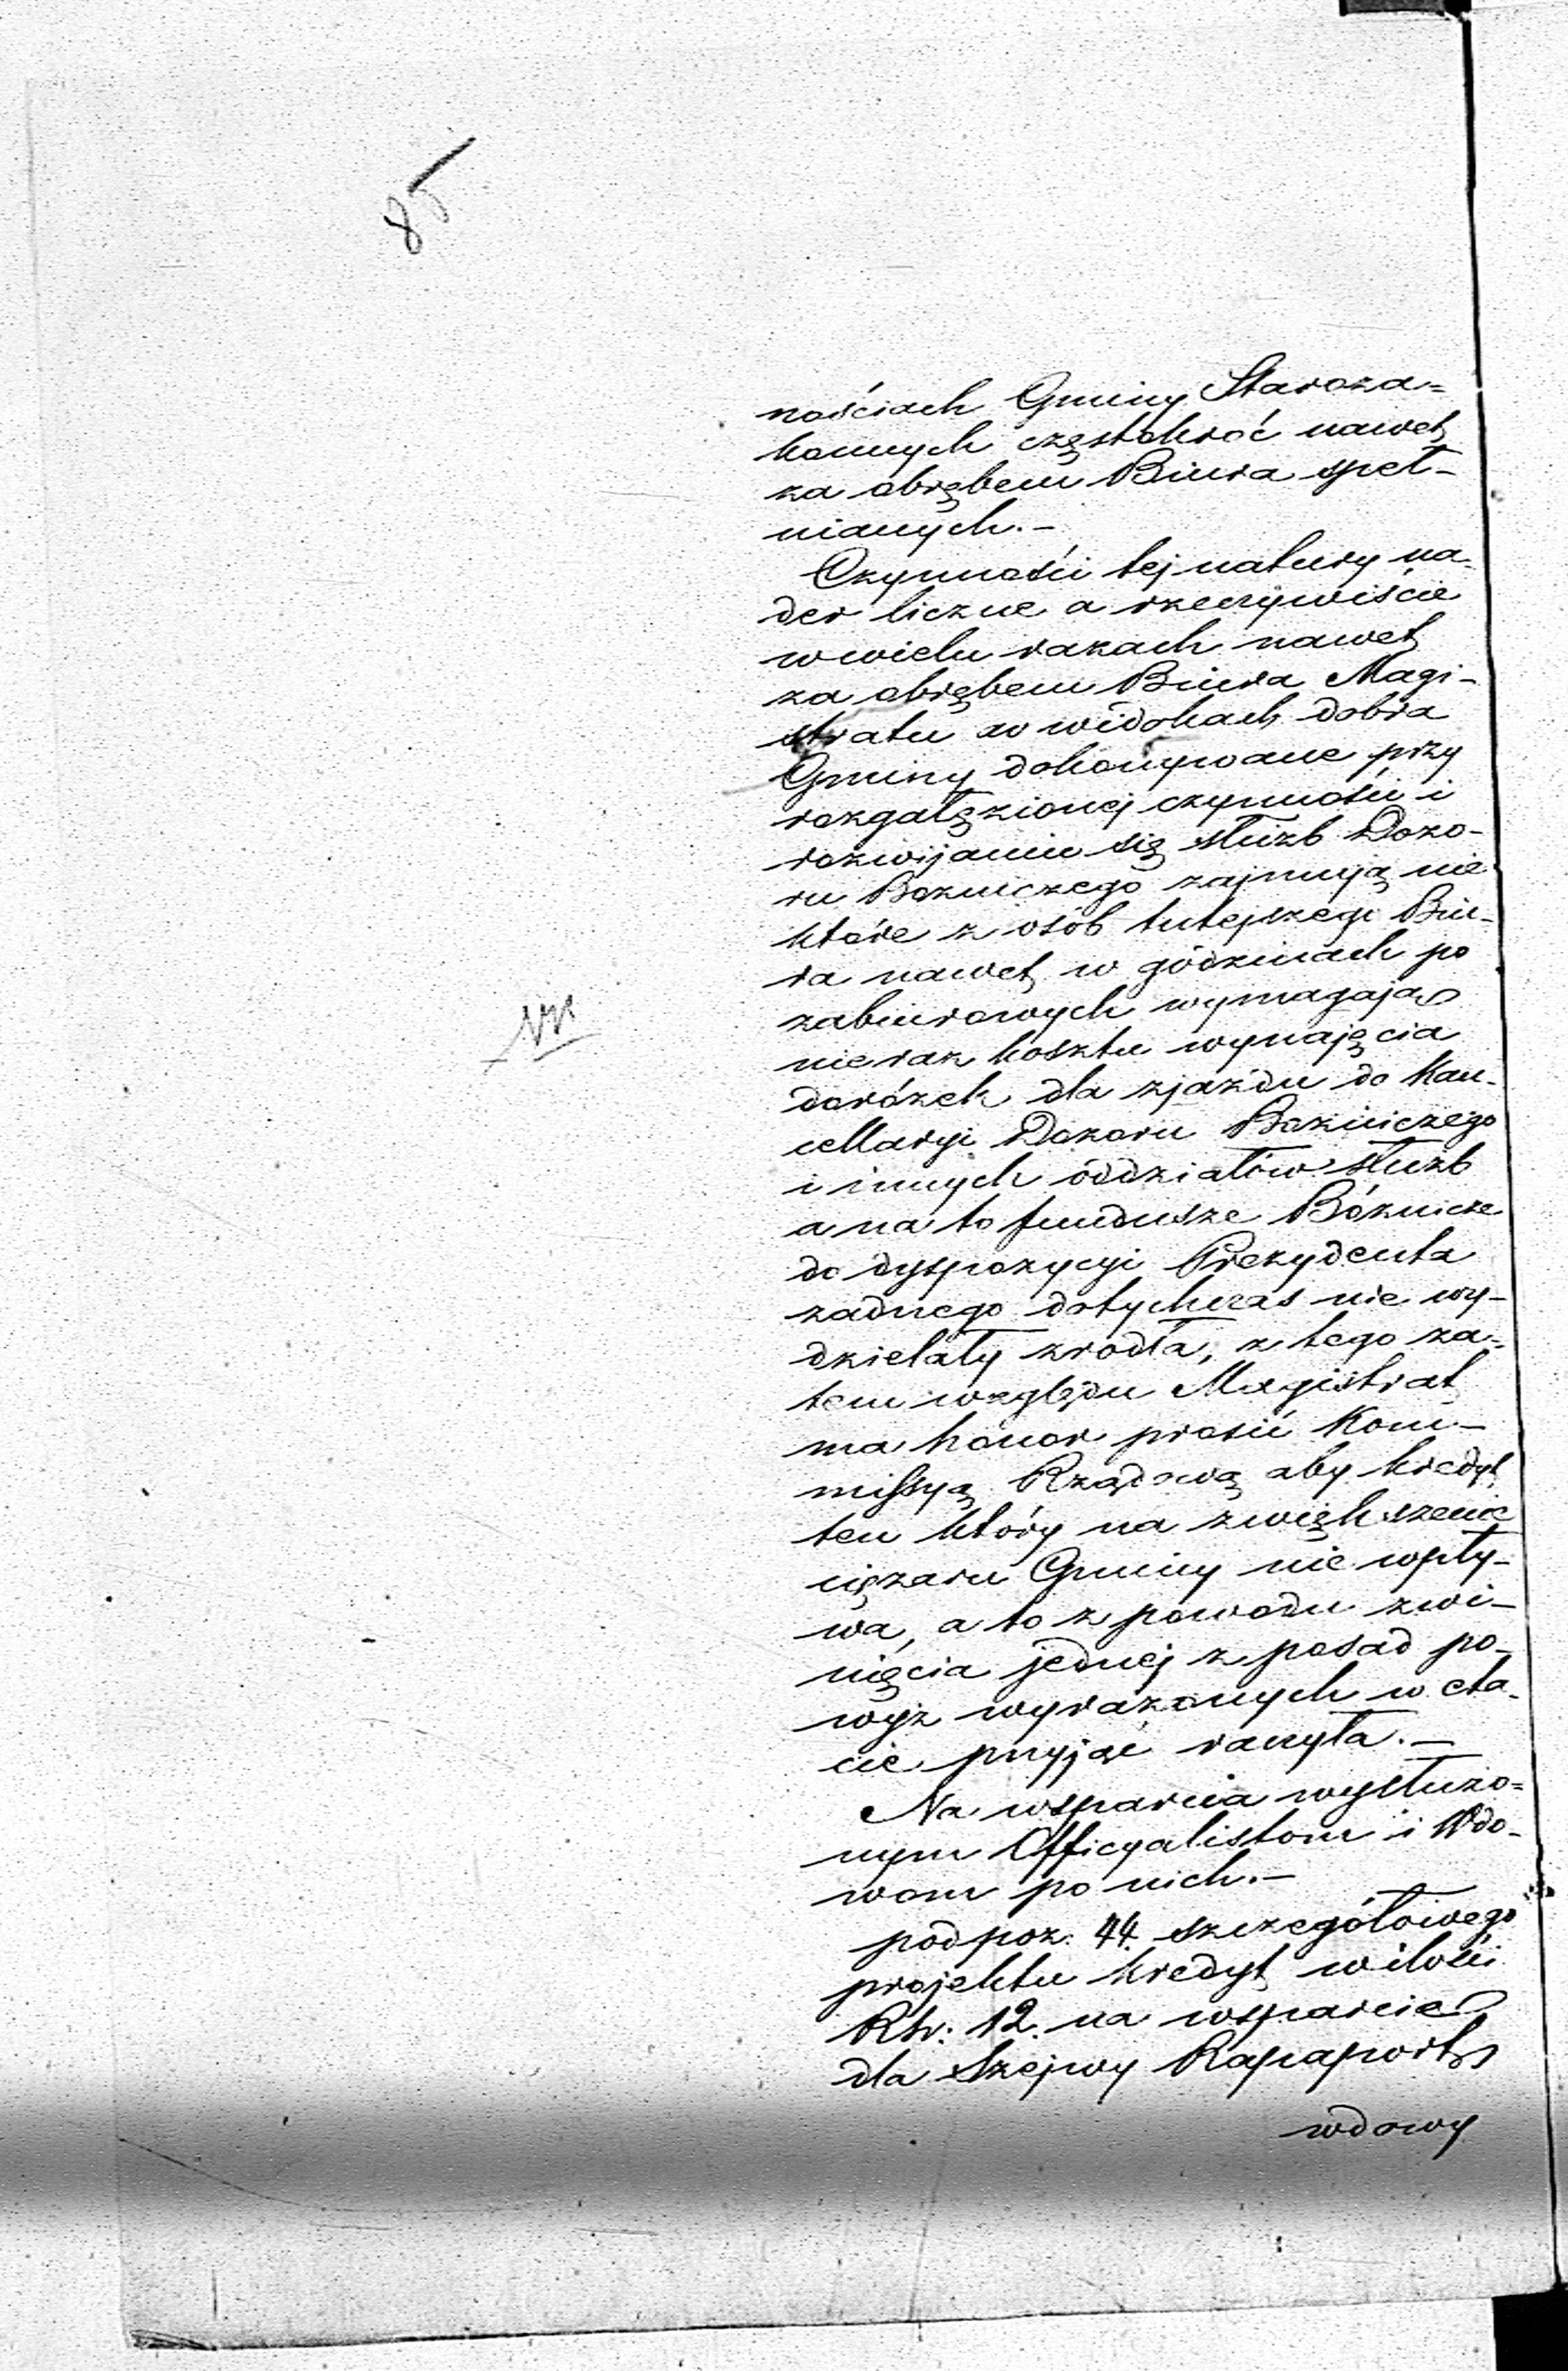 85
nościach Gminy Staroza=
konnych częstokroć nawet
za obrębem Biura speł-
nianych.-
Czynności tej natury na-
der liczne a rzeczywiście
w wielu razach nawet
za obrębem Biura Magi-
stratu w widokach dobra
Gminy dokonywane przy
rozgałęzionej czynności i
rozwijaniu się służb Dozo-
ru Bozniczego zajmują nie
które z osób tutejszego Biu-
ra nawet w godzinach po
zabiurowych wymagają
nie raz kosztu wynajęcia
dorózek dla zjazdu do Kan-
cellaryi Dozoru Bozniczego
i innych oddziałów służb
a na to fundusze Bóznicze
do dyspozycyi Prezydenta
zadnego dotychczas nie wy-
dzielały zrodła, z tego za-
tem względu Magistrat
ma honor prosić Kom-
missyą Rządową aby kredyt
ten który na zwiększenie
ciężaru Gminy nie wpły-
wa, a to z powodu zwi-
nięcia jednej z posad po-
wyz wyrazonych w eta-
cie przyjąć raczyła.-
Na wsparcia wysłuzo=
nym Officyalistom i Wdo-
wom po nich.-
pod poz. 44. szczegółowego
projektu kredyt w ilości
Rbr: 12. na wsparcie
dla Szejwy Rapaport
wdowy